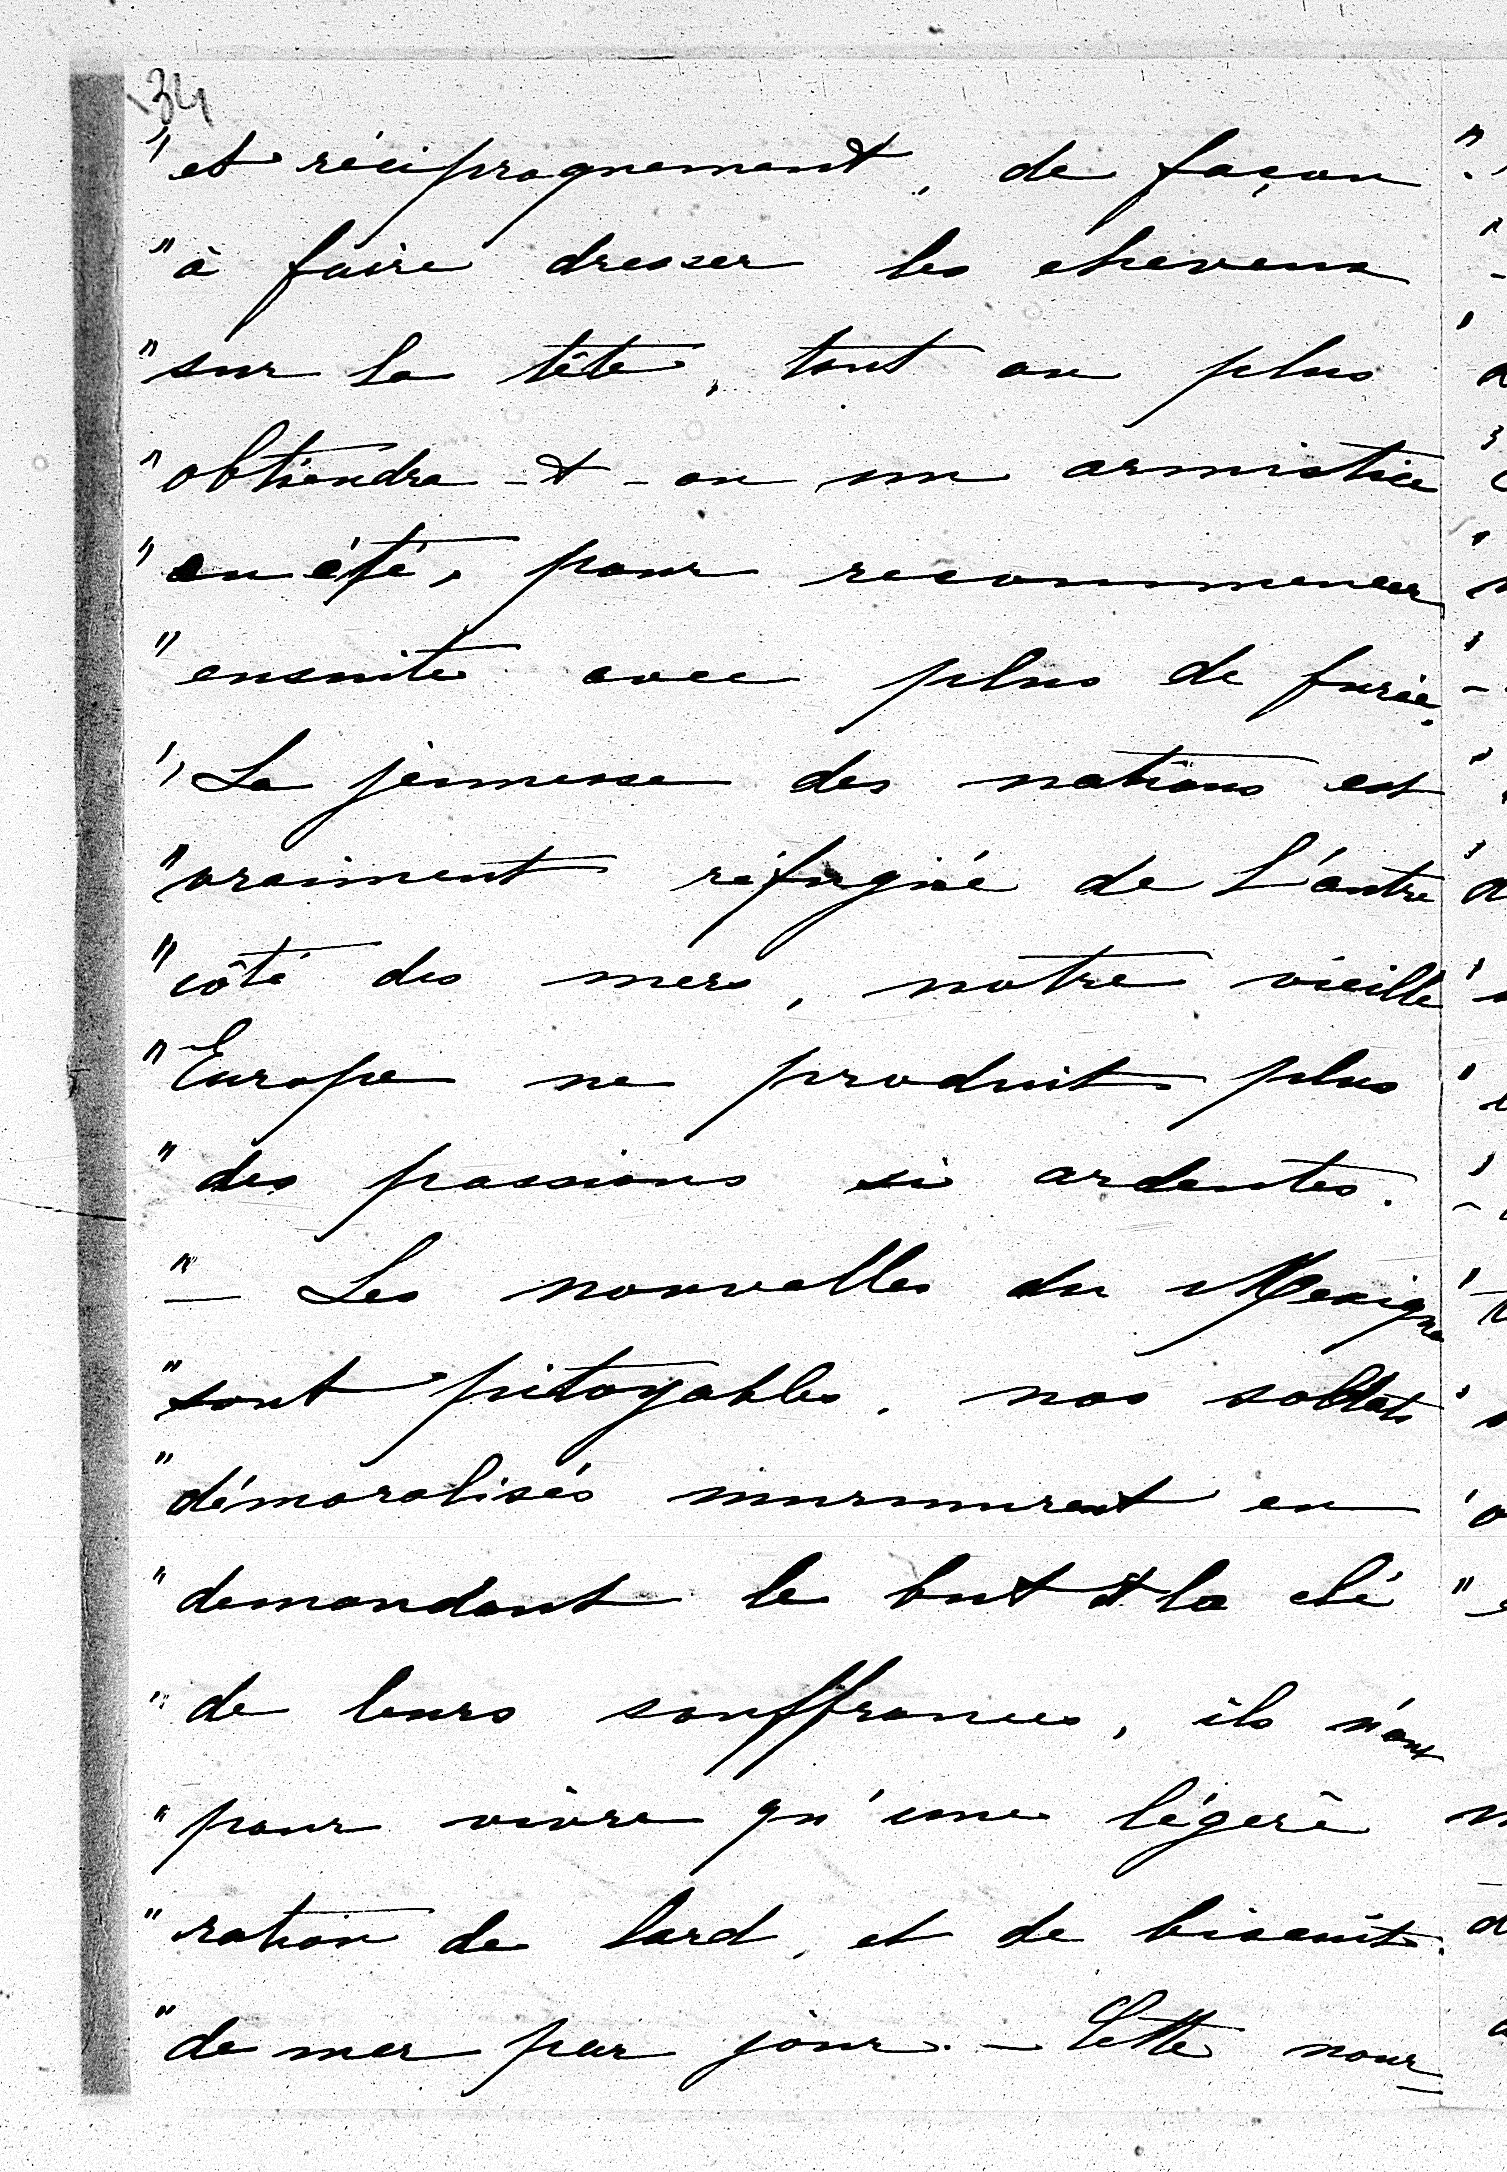 34
" et réciproquement, de façon
" à faire dresser les cheveux
" sur la tête, tout au plus
" obtiendra-t-on un armistice
" en été, pour recommencer
" ensuite avec plus de furie.
" La jeunesse des nations est
" vraiment réfugiée de l'autre
" côté des mers, notre vieille
" Europe ne produit plus
" des passions si ardentes.
" — Les nouvelles du Mexique
" sont pitoyables. nos soldats
" démoralisés murmurent en
" demandant le but et la clé
" de leurs souffrances, ils n'ont
" pour vivre qu'une légère
" ration de lard, et de biscuit
" de mer par jour. — Cette nour=